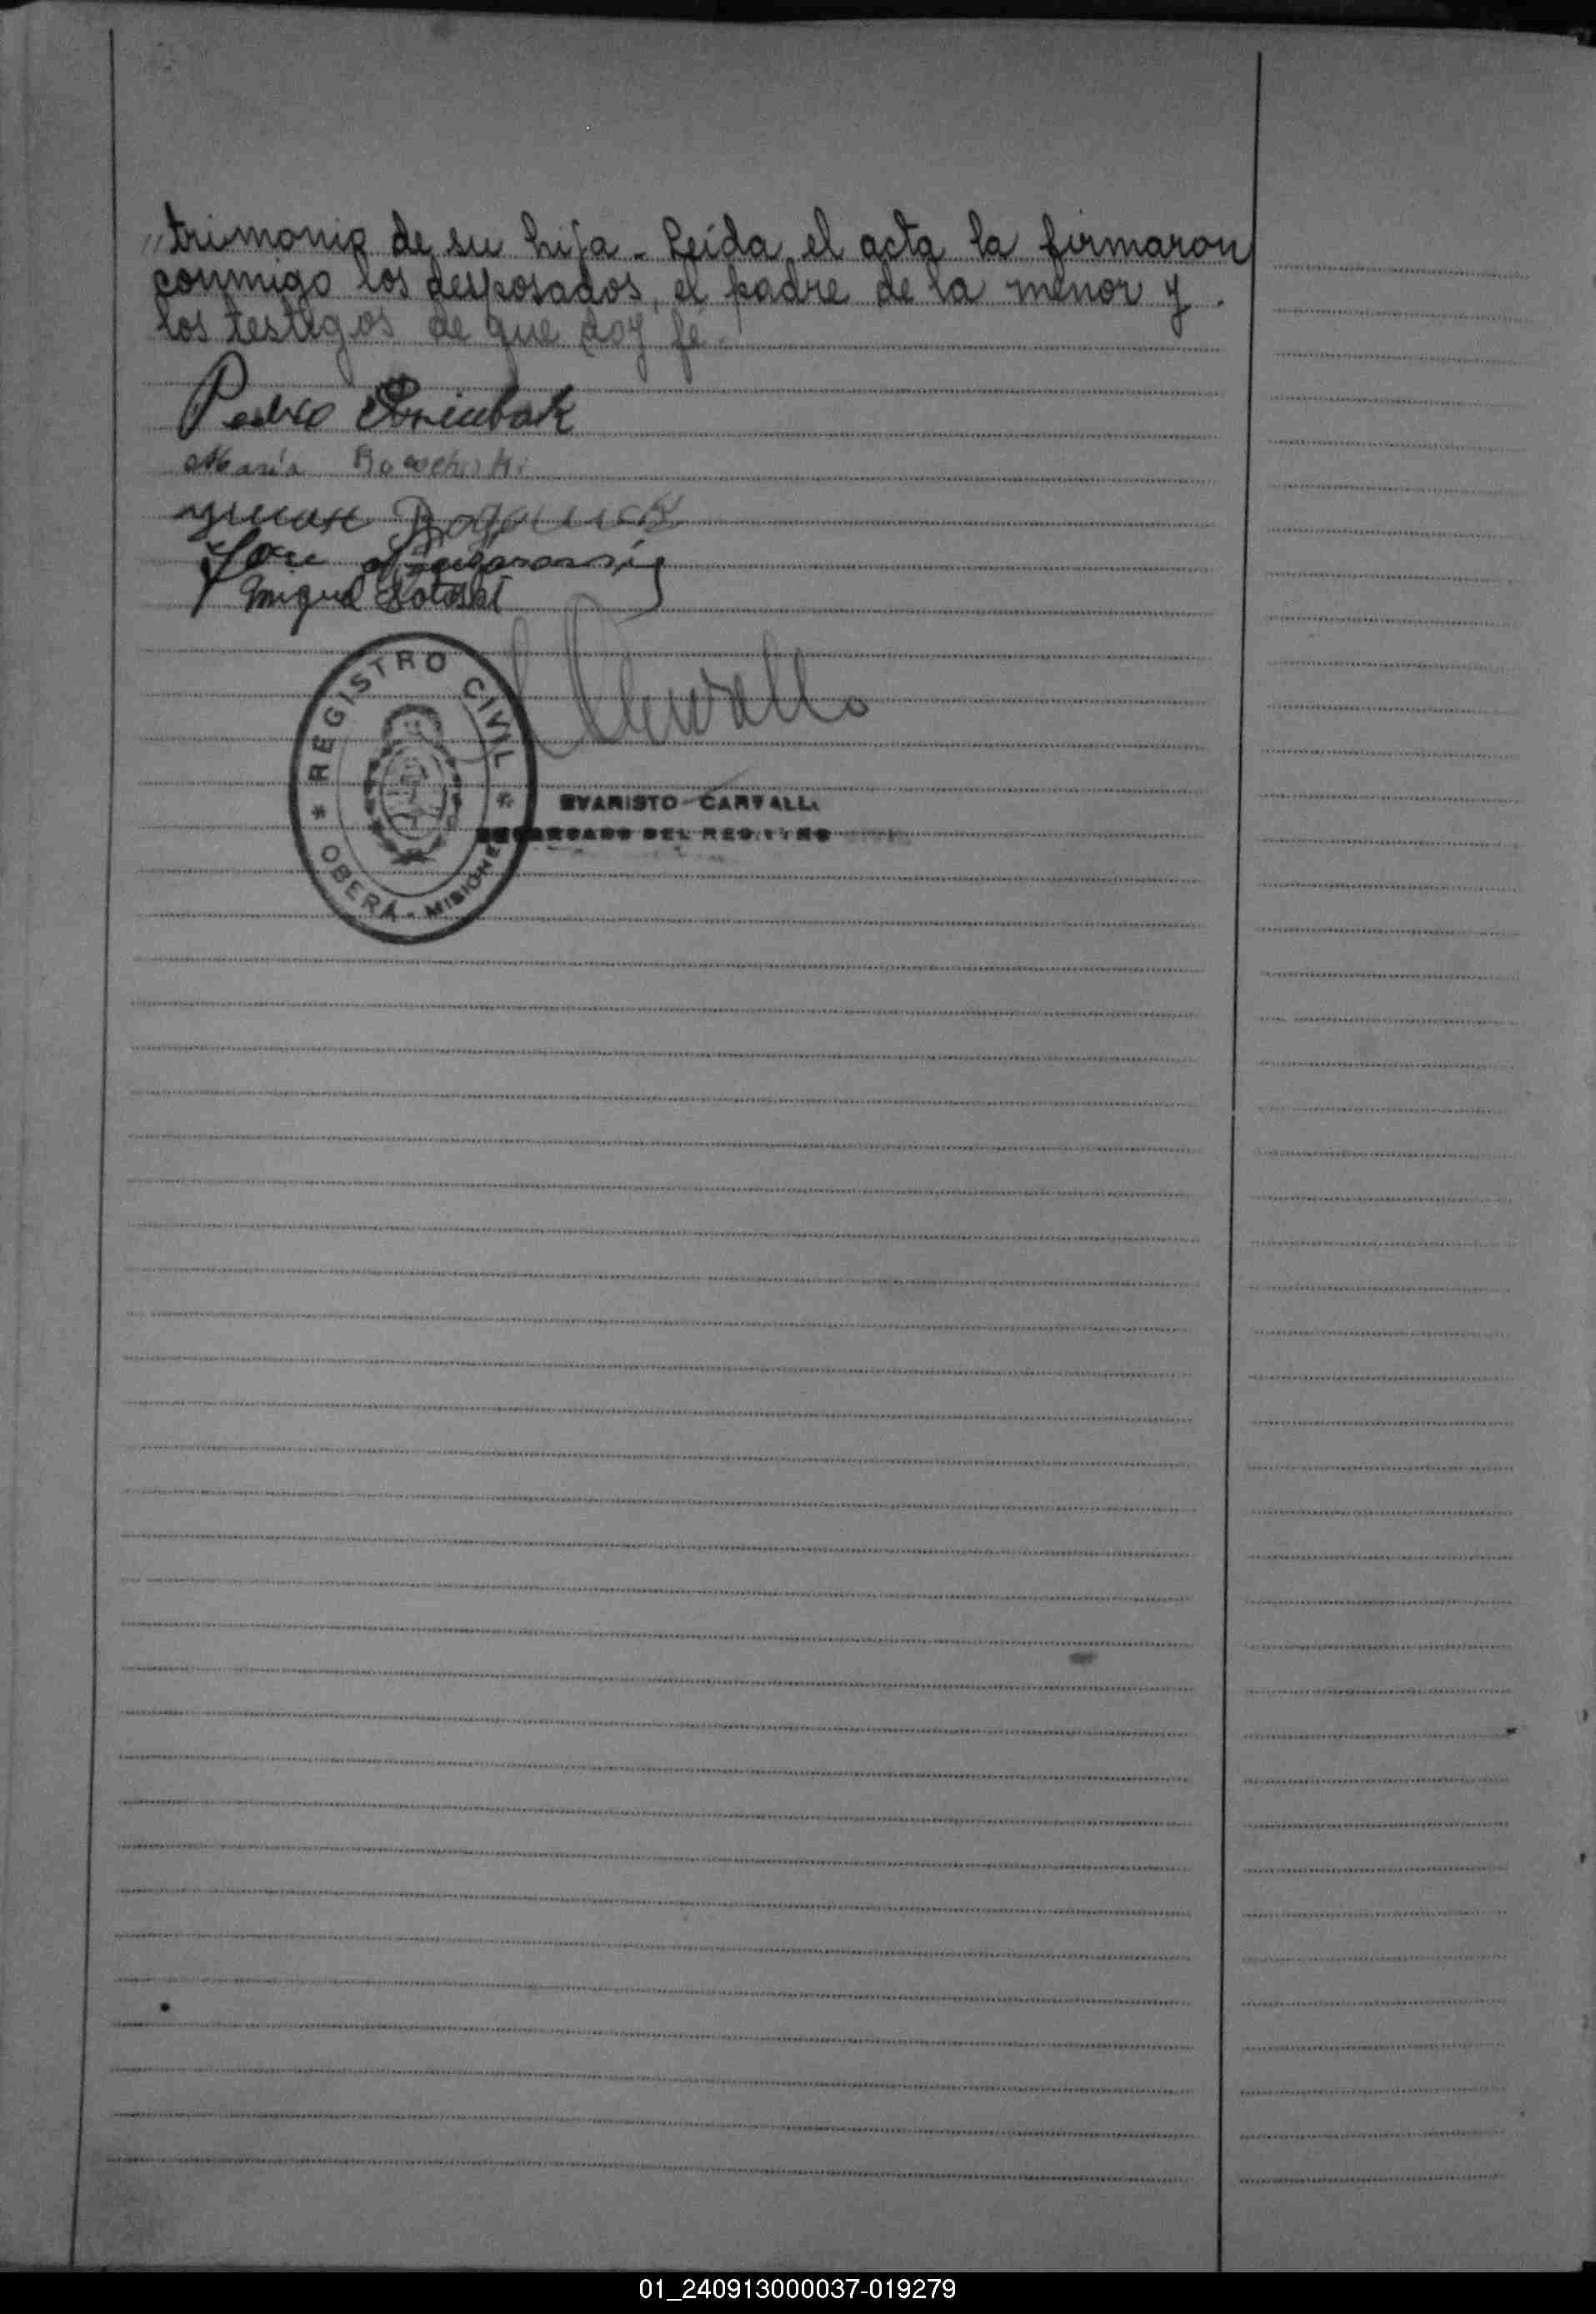 "trimonio de su hija - Leída el acta la firmaron
conmigo los desposados, el padre de la menor y
los testigos de que doy fé.
Pedro
María
Jose
Miguel
REGISTRO CIVIL
* *
OBERÁ - MISIONES
EVARISTO CARVALLO
ENCARGADO DEL REGISTRO
01_240913000037-019279